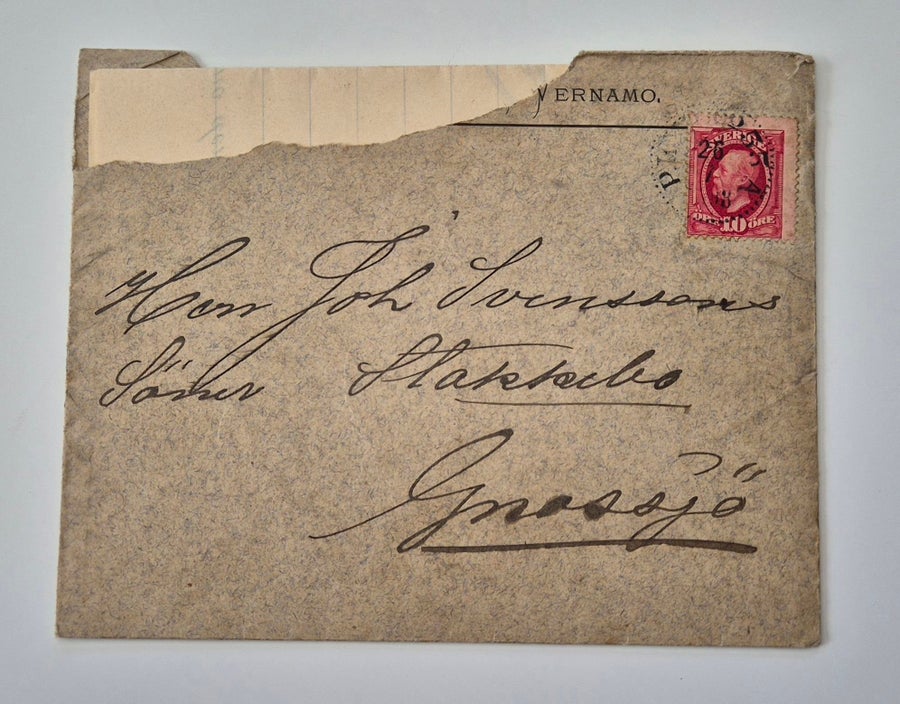 VERNAMO.
SVERIGE
ÖRE 10 ÖRE
Herr Joh Svenssons
Söner Stakkebo
Gnossjö